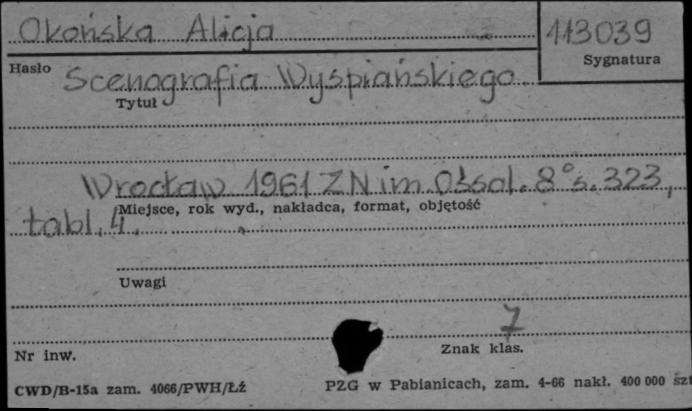 Okońska Alicja 113039
Hasło Sygnatura
Scenografia Wyspiańskiego
Tytuł
Wrocław 1961 ZN im. Ossol. 8° s. 323,
Miejsce, rok wyd., nakładca, format, objętość
tabl. 4.
Uwagi
7
Nr inw. Znak klas.
CWD/B-15a zam. 4066/PWH/Łź PZG w Pabianicach, zam. 4-66 nakł. 400 000 szt